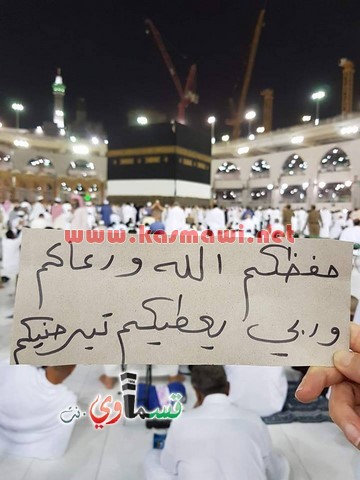 www.kasmawi.net
حفظكم الله ورعاكم
وربي يعطيكم تيرضيكم
قسماوي نت